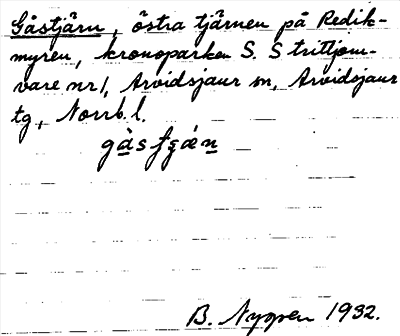 Gåstjärn, östra tjärnen på Redik-
myren, kronoparken S. Strittjom-
vare nr 1, Arvidsjaur sn, Arvidsjaur
tg, Norrb. l.
B. Nygren 1932.